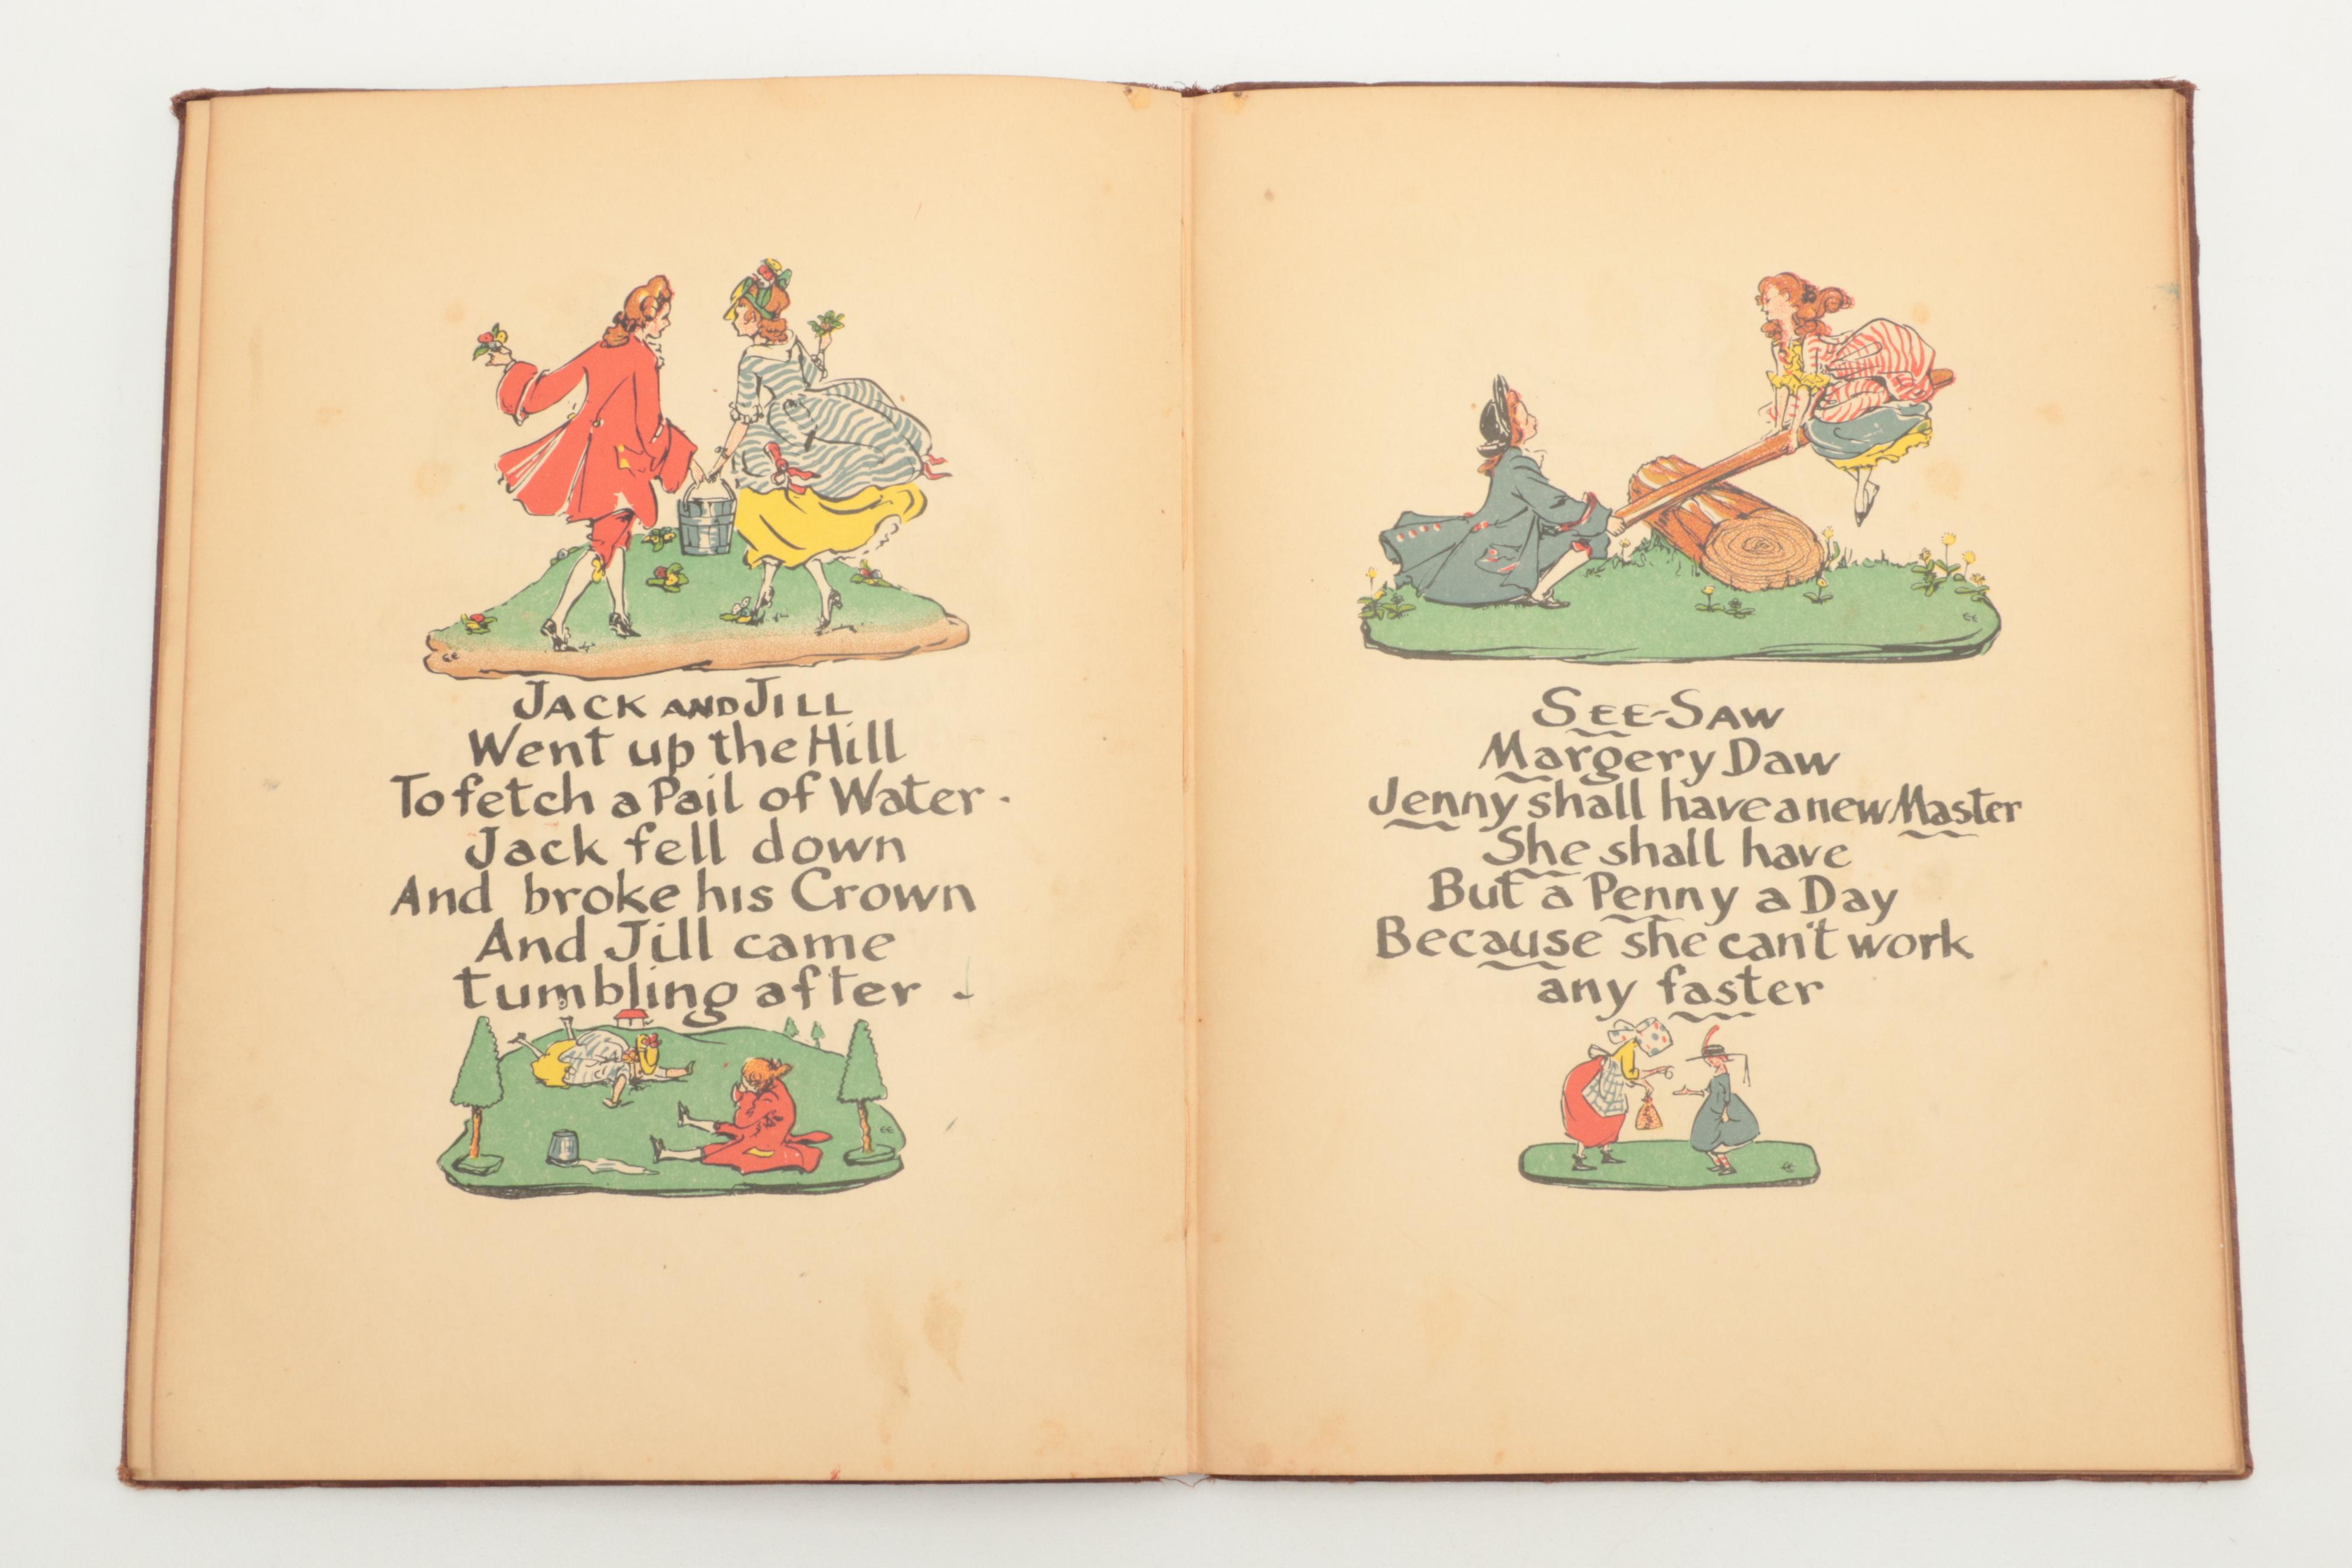 JACK AND JILL
Went up the Hill
To fetch a Pail of Water.
Jack fell down
And broke his Crown
And Jill came
tumbling after.
EE
EE
SEE-SAW
Margery Daw
Jenny shall have a new Master
She shall have
But a Penny a Day
Because she can't work
any faster
EE
EE